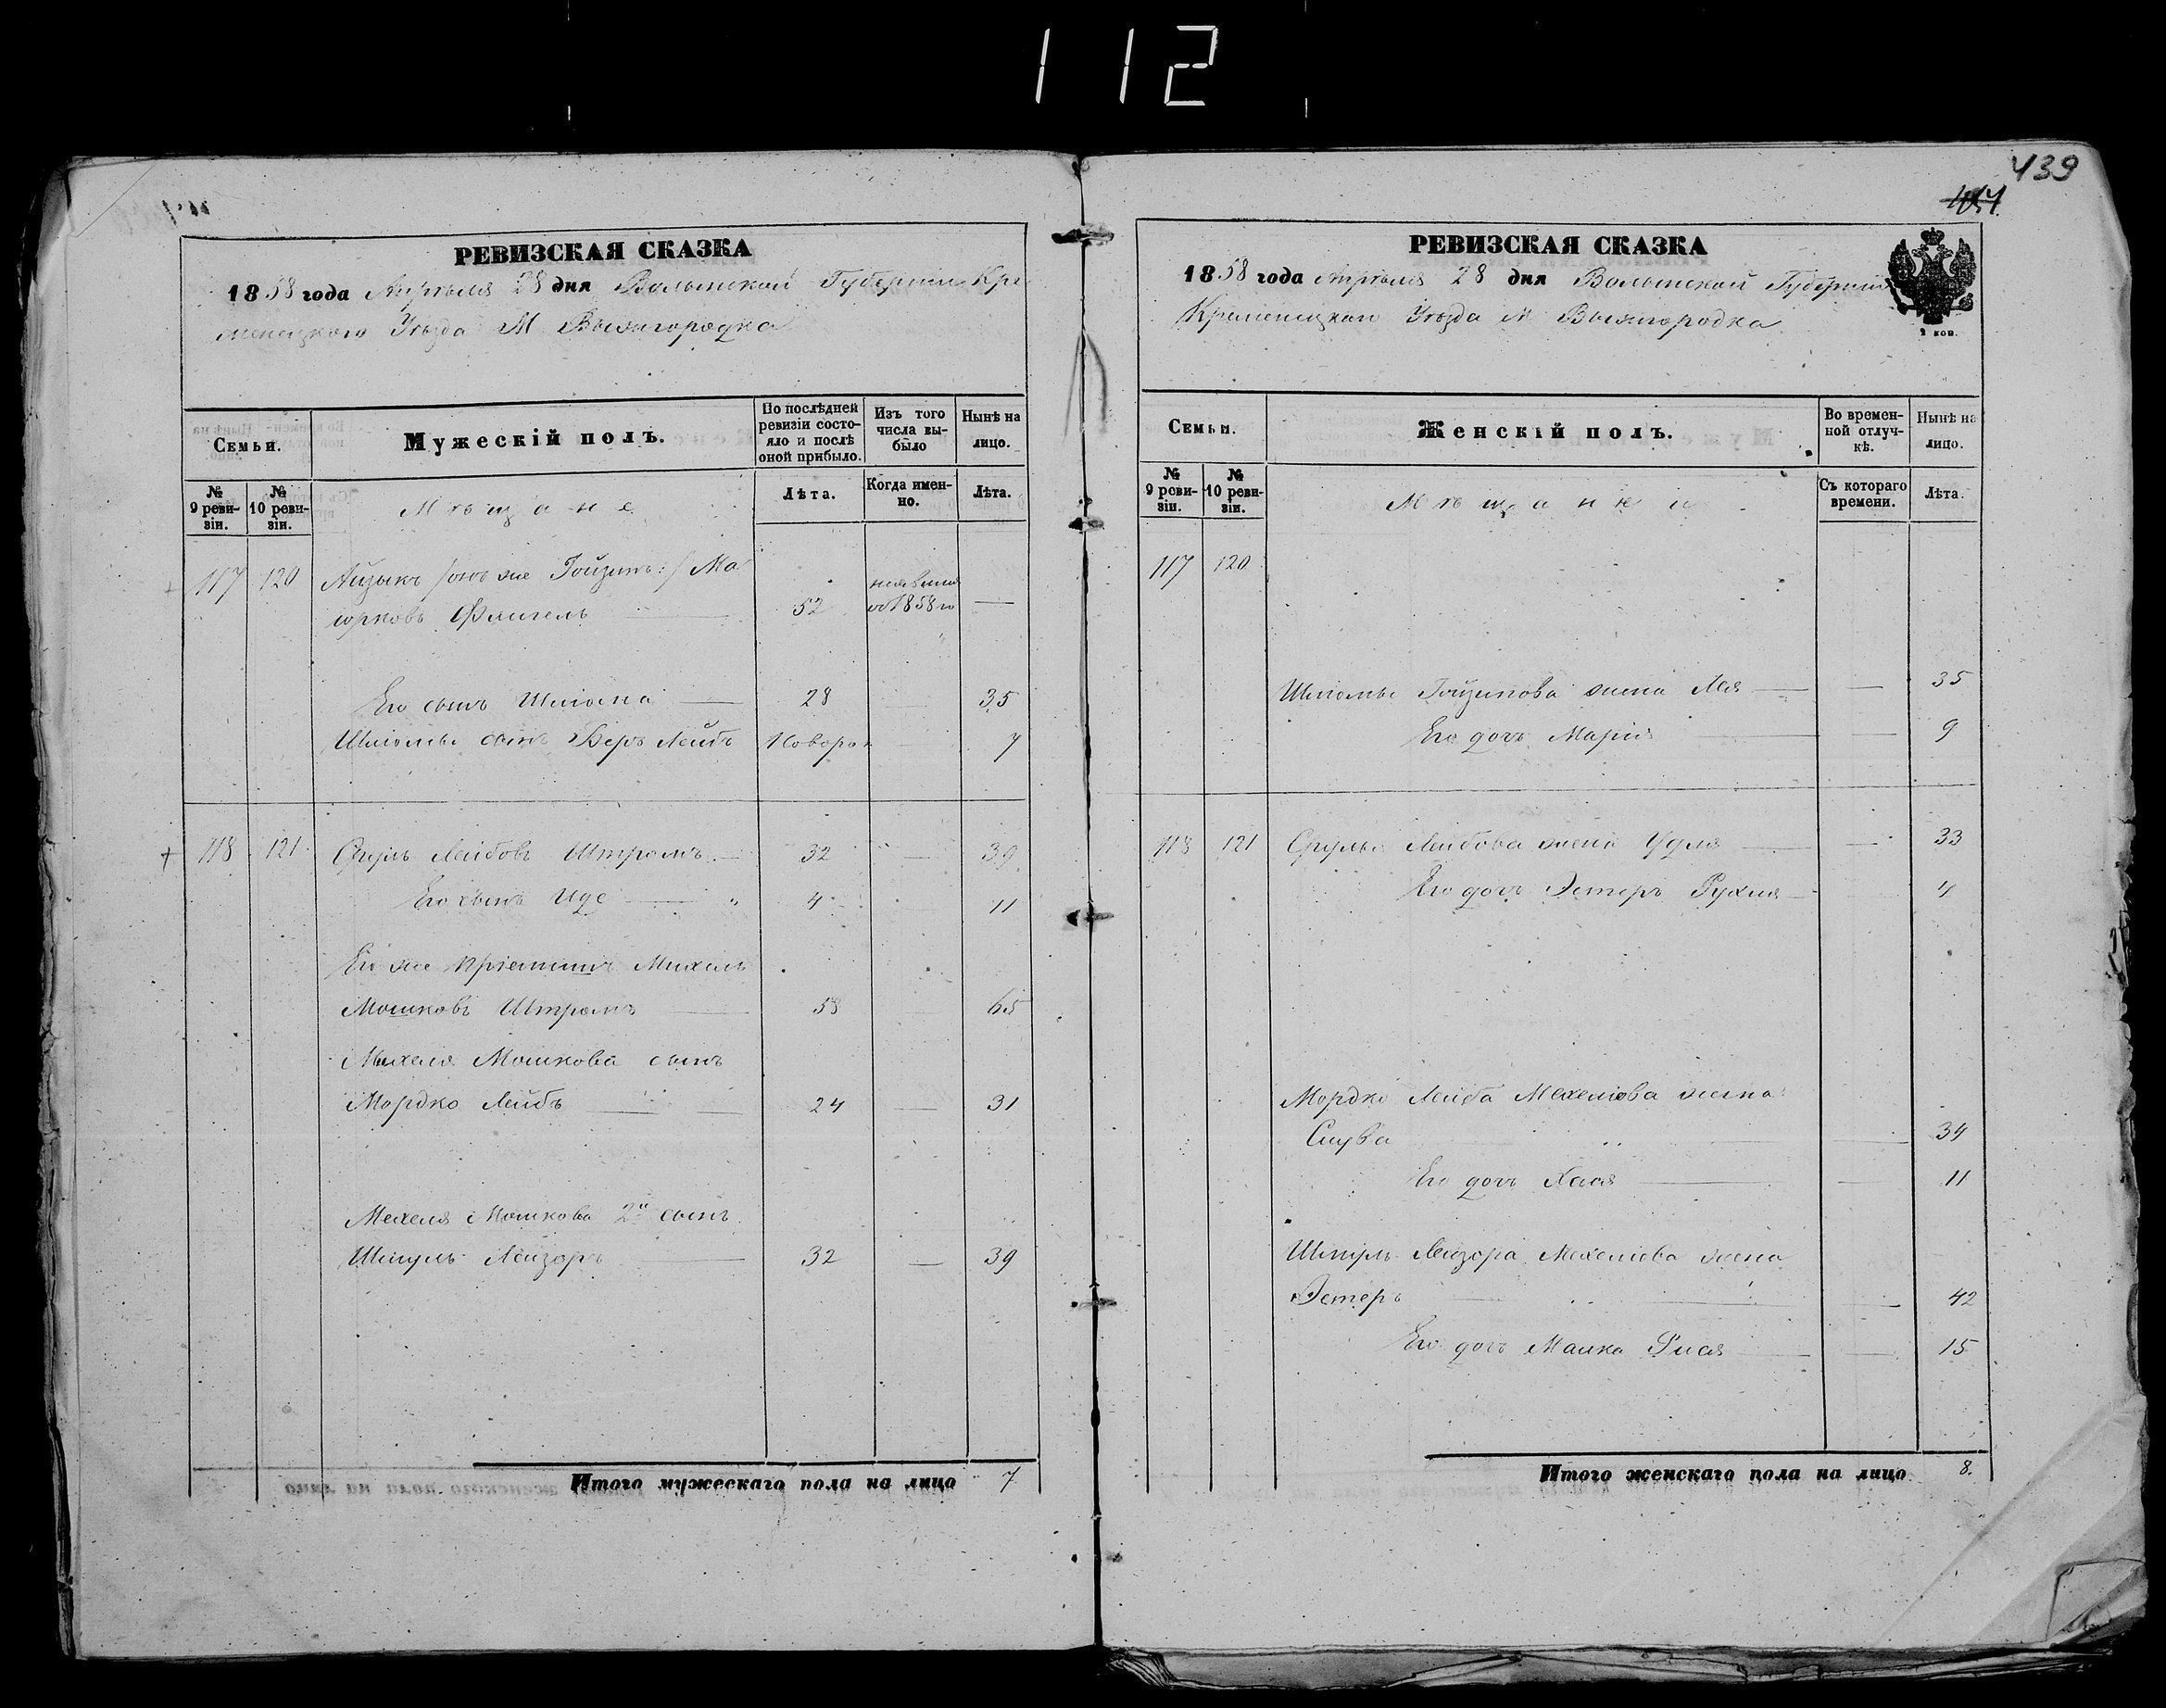 112
РЕВИЗСКАЯ СКАЗКА
1858 года Апрѣля 28 дня Волынской Губерніи Кре
менецкого Уѣзда М Вышгородка
Семьи.
Мужескій полъ.
По послѣдней ревизіи состояло и послѣ оной прибыло.
Изъ того числа выбыло
Нынѣ на лицо.
№ 9 ревизіи.
№ 10 ревизіи.
Мѣщане
Лѣта.
Когда именно.
Лѣта.
117 120 Айзыкъ /онъ же Гойзинъ:/ Ма
юрковъ Флигель 52 неявился съ 1858 го —
Его сынъ Шлiома — 28 35
Шлiомы сынъ Беръ Лейбъ Новорож 7
118 121 Сруль Лейбовъ Штромъ — 32 — 39
Его сынъ Иде — " 4 11
Его же пріемышъ Михель
Мошковъ Штромъ — 58 65
Михеля Мошкова сынъ
Мордко Лейбъ — 24 — 31
Мехеля Мошкова 2й сынъ
Шмуль Лейзоръ — 32 — 39
Итого мужескаго пола на лицо 7
439
РЕВИЗСКАЯ СКАЗКА
1858 года Апрѣля 28 дня Волынской Губерніи
Кременецкаго Уѣзда М Вышгородка
2 коп.
Семьи.
Женскій полъ.
Во временной отлучкѣ.
Нынѣ на лицо.
№ 9 ревизіи.
№ 10 ревизіи.
Мѣщанки
Съ котораго времени.
Лѣта.
117 120
Шлiомы Гойзинова жена Лея — — 35
Его дочь Марія — 9
118 121 Сруля Лейбова жена Удля — — 33
Его дочь Эстеръ Рухля — 4
Мордко Лейба Мехелiова жена
34
Его дочь Хася — — 11
Шмуль Лейзора Мехелiова жена
Эстеръ — — 42
Его дочь Малка Рися — — 15
Итого женскаго пола на лицо 8.